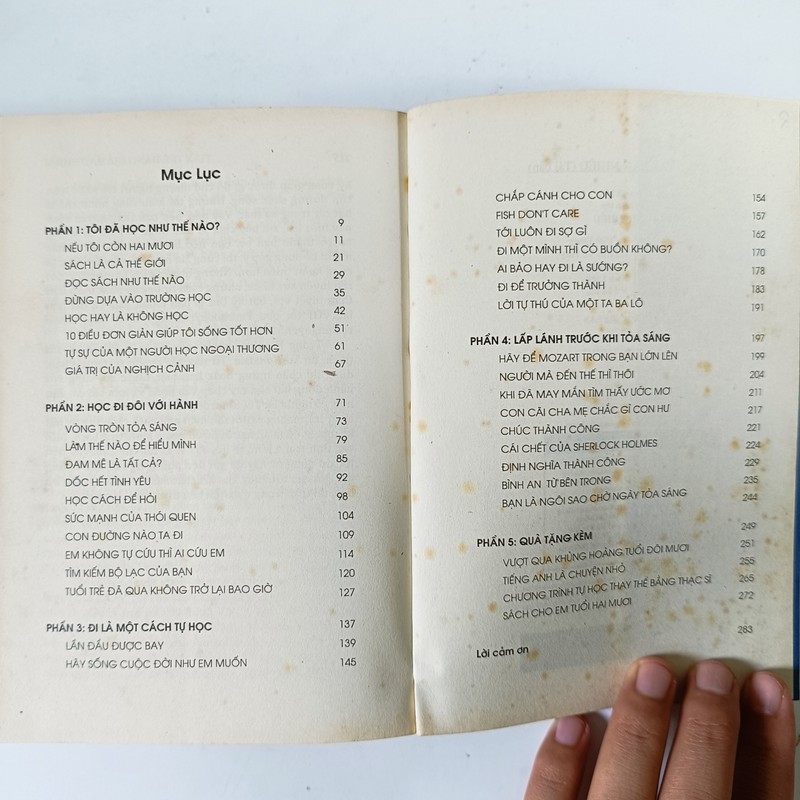 Mục Lục
PHẦN 1: TÔI ĐÃ HỌC NHƯ THẾ NÀO? 9
NẾU TÔI CÒN HAI MƯƠI 11
SÁCH LÀ CẢ THẾ GIỚI 21
ĐỌC SÁCH NHƯ THẾ NÀO 29
ĐỪNG DỰA VÀO TRƯỜNG HỌC 35
HỌC HAY LÀ KHÔNG HỌC 42
10 ĐIỀU ĐƠN GIẢN GIÚP TÔI SỐNG TỐT HƠN 51
TỰ SỰ CỦA MỘT NGƯỜI HỌC NGOẠI THƯƠNG 61
GIÁ TRỊ CỦA NGHỊCH CẢNH 67
PHẦN 2: HỌC ĐI ĐÔI VỚI HÀNH 71
VÒNG TRÒN TỎA SÁNG 73
LÀM THẾ NÀO ĐỂ HIỂU MÌNH 79
ĐAM MÊ LÀ TẤT CẢ? 85
DỐC HẾT TÌNH YÊU 92
HỌC CÁCH ĐỂ HỎI 98
SỨC MẠNH CỦA THÓI QUEN 104
CON ĐƯỜNG NÀO TA ĐI 109
EM KHÔNG TỰ CỨU THÌ AI CỨU EM 114
TÌM KIẾM BỘ LẠC CỦA BẠN 120
TUỔI TRẺ ĐÃ QUA KHÔNG TRỞ LẠI BAO GIỜ 127
PHẦN 3: ĐI LÀ MỘT CÁCH TỰ HỌC 137
LẦN ĐẦU ĐƯỢC BAY 139
HÃY SỐNG CUỘC ĐỜI NHƯ EM MUỐN 145
CHẮP CÁNH CHO CON 154
FISH DON'T CARE 157
TỚI LUÔN ĐI SỢ GÌ 162
ĐI MỘT MÌNH THÌ CÓ BUỒN KHÔNG? 170
AI BẢO HAY ĐI LÀ SƯỚNG? 178
ĐI ĐỂ TRƯỞNG THÀNH 183
LỜI TỰ THÚ CỦA MỘT TA BA LÔ 191
PHẦN 4: LẤP LÁNH TRƯỚC KHI TỎA SÁNG 197
HÃY ĐỂ MOZART TRONG BẠN LỚN LÊN 199
NGƯỜI MÀ ĐẾN THẾ THÌ THÔI 204
KHI ĐÃ MAY MẮN TÌM THẤY ƯỚC MƠ 211
CON CÃI CHA MẸ CHẮC GÌ CON HƯ 217
CHÚC THÀNH CÔNG 221
CÁI CHẾT CỦA SHERLOCK HOLMES 224
ĐỊNH NGHĨA THÀNH CÔNG 229
BÌNH AN TỪ BÊN TRONG 235
BẠN LÀ NGÔI SAO CHỜ NGÀY TỎA SÁNG 244
PHẦN 5: QUÀ TẶNG KÈM 249
VƯỢT QUA KHỦNG HOẢNG TUỔI ĐÔI MƯƠI 251
TIẾNG ANH LÀ CHUYỆN NHỎ 255
CHƯƠNG TRÌNH TỰ HỌC THAY THẾ BẰNG THẠC SĨ 265
SÁCH CHO EM TUỔI HAI MƯƠI 272
Lời cảm ơn 283